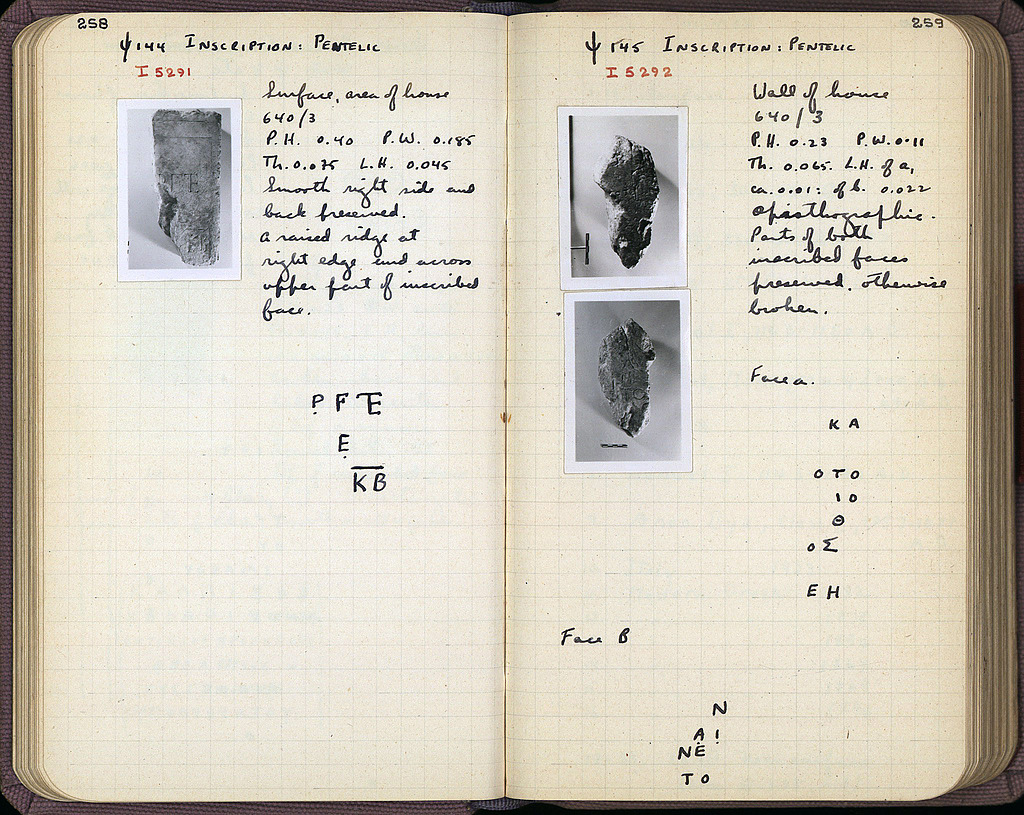 258
ψ 144 INSCRIPTION: PENTELIC
I 5291
Surface, area of house
640/3
P.H. 0.40 P.W. 0.185
Th. 0.075 L.H. 0.045
Smooth right side and
back preserved.
A raised ridge at
right edge and across
upper part of inscribed
face.
Ρ̣ F Ε
Ε̣
Κ̅Β̅
259
ψ 145 INSCRIPTION: PENTELIC
I 5292
Wall of house
640/3
P.H. 0.23 P.W. 0.11
Th. 0.065. L.H. of a,
ca. 0.01: of b. 0.022
Opisthographic.
Parts of both
inscribed faces
preserved, otherwise
broken.
Face a.
Κ Α
Ο Τ Ο
Ι Ο
Θ
Ο Σ
Ε Η
Face B
Ν
Α̣ Ι̣
ΝΕ
Τ Ο